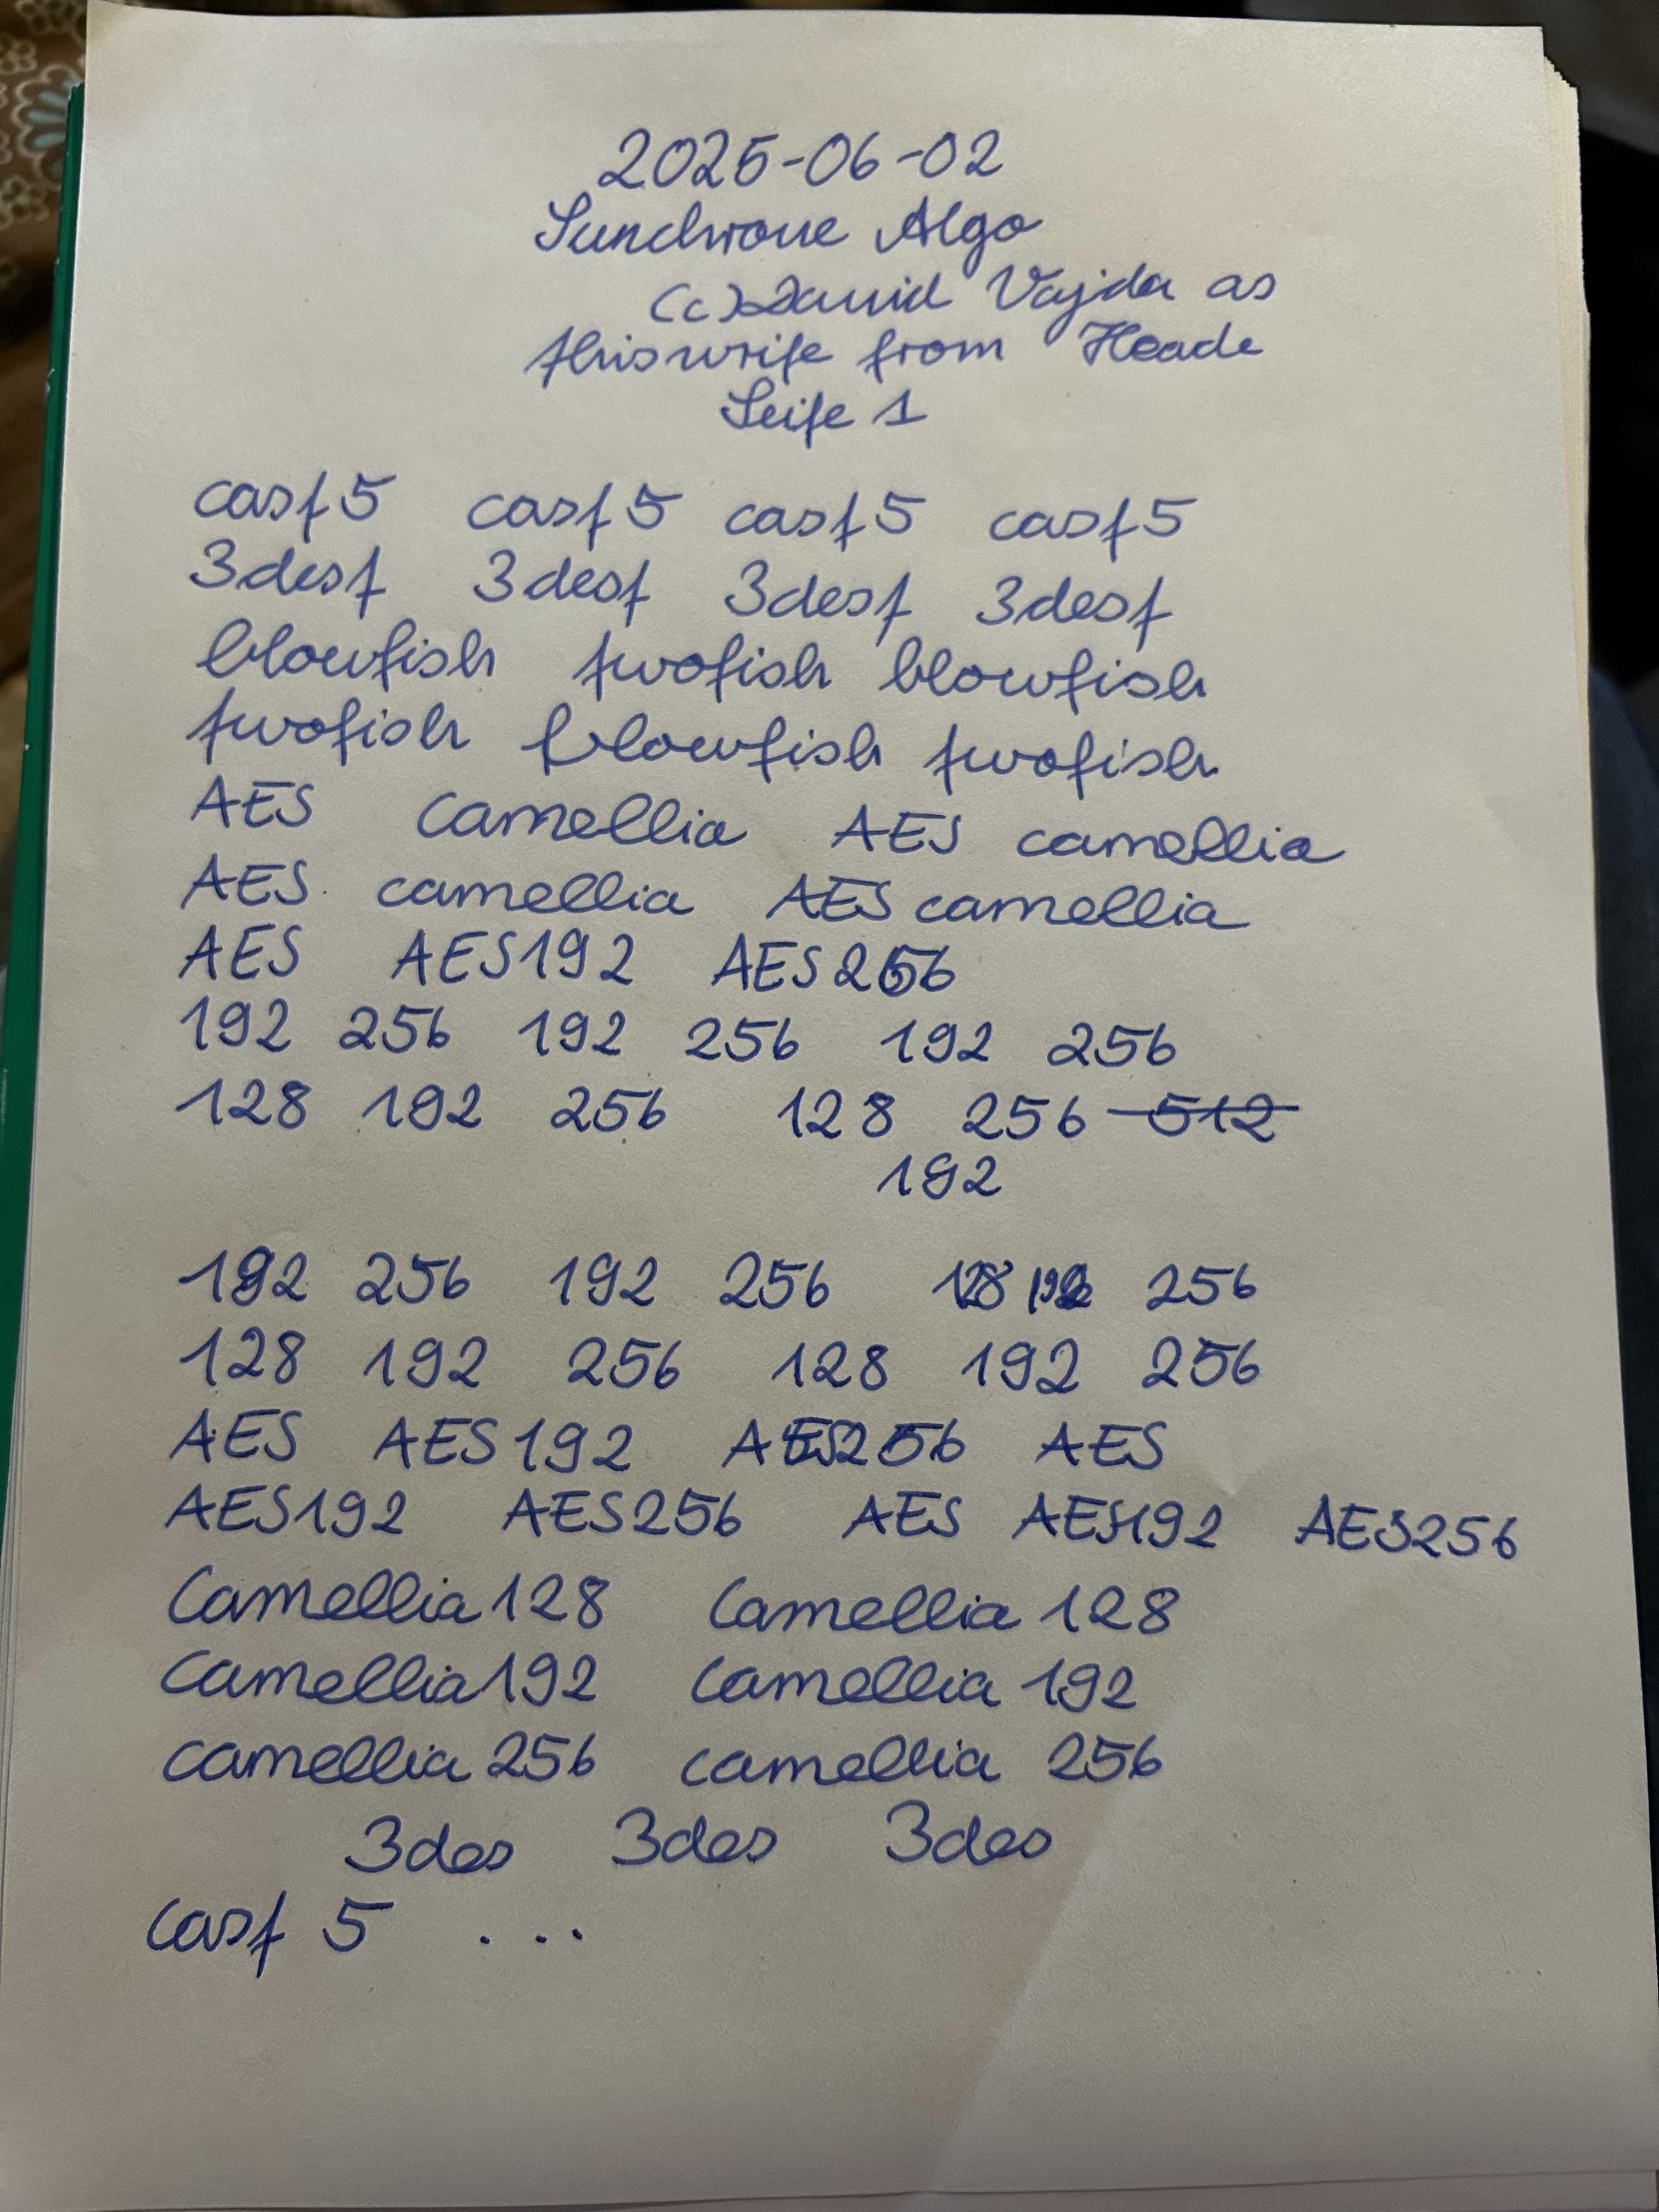 2025-06-02
Sunchrone Algo
(c) David Vajda as
this write from Heade
Seite 1
cast5 cast5 cast5 cast5
3dest 3dest 3dest 3dest
blowfish twofish blowfish
twofish blowfish twofish
AES Camellia AES camellia
AES camellia AES camellia
AES AES192 AES256
192 256 192 256 192 256
128 192 256 128 256 512
192
192 256 192 256 128 192 256
128 192 256 128 192 256
AES AES192 AES256 AES
AES192 AES256 AES AES192 AES256
Camellia128 Camellia 128
Camellia192 Camellia 192
camellia 256 camellia 256
3des 3des 3des
Cast 5 ...